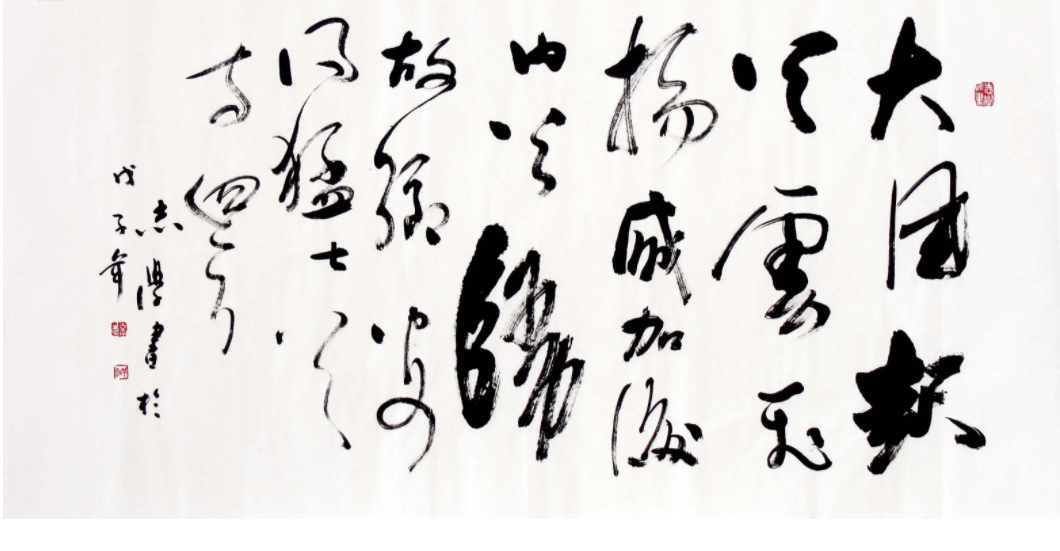 大風起
兮雲飛
揚威加海
內兮歸
故鄉安
得猛士兮
守四方
志學書於
戊子年